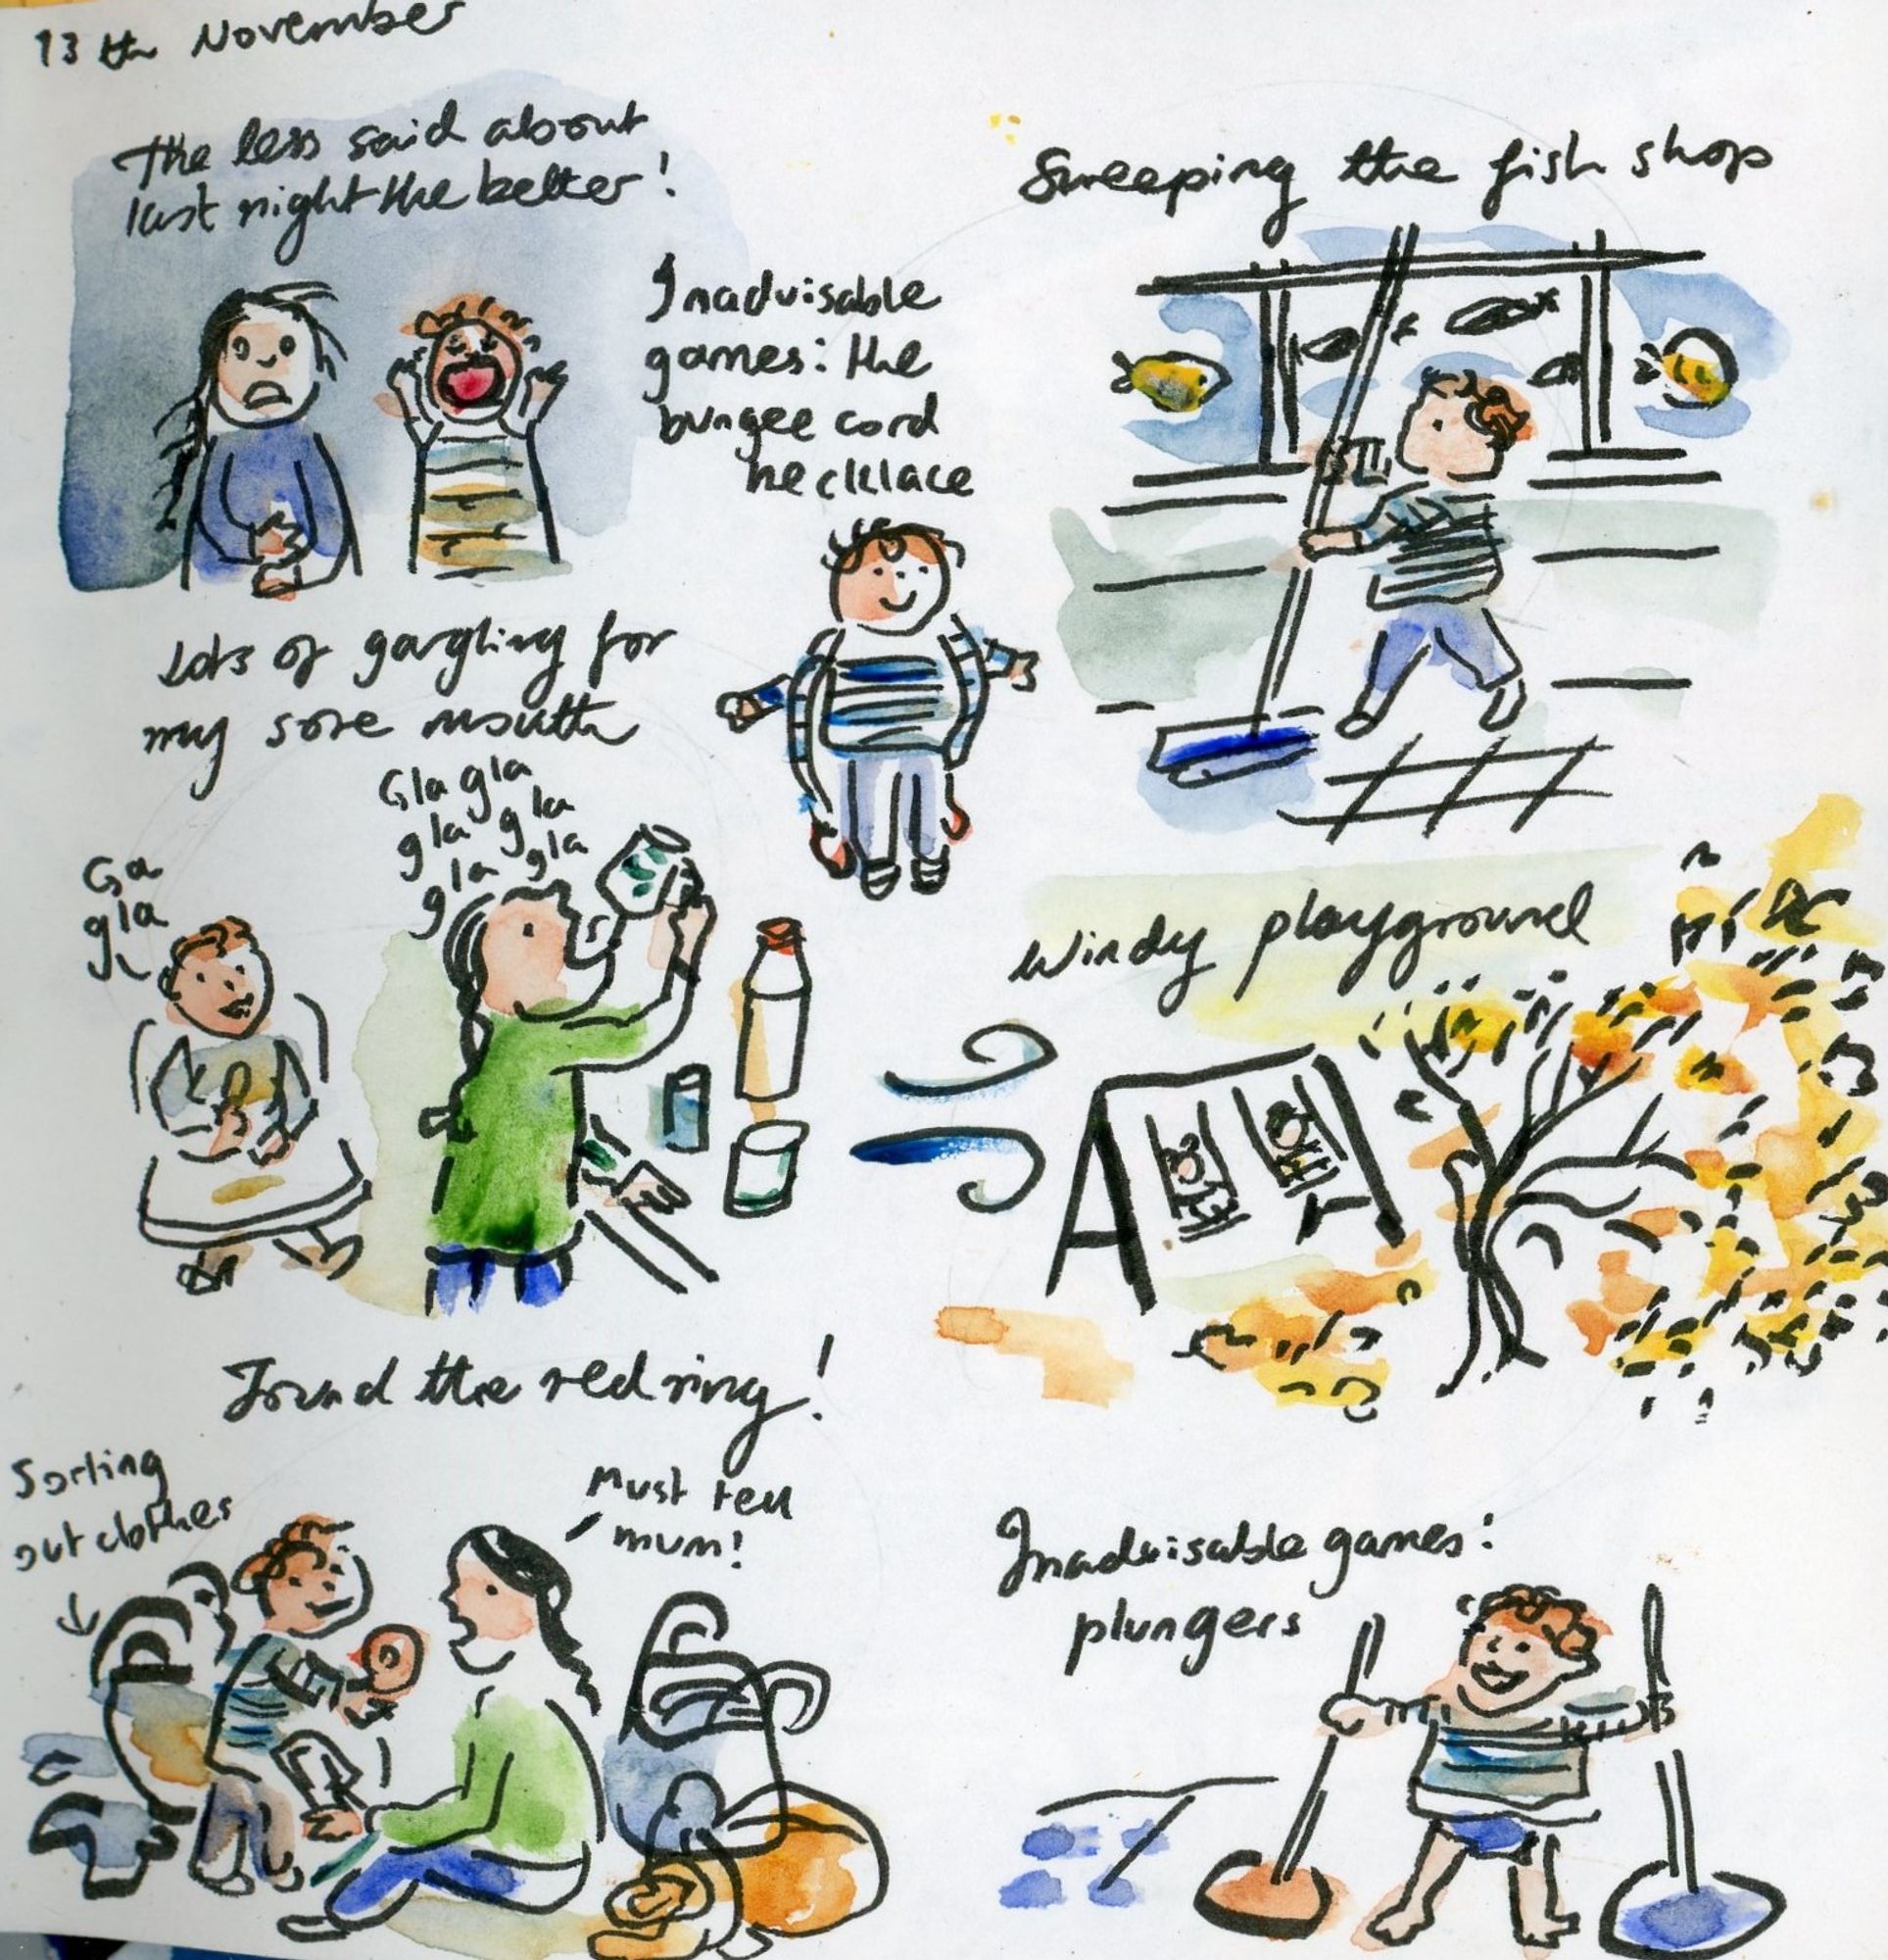 13th November
The less said about
last night the better!
Inadvisable
games: the
bungee cord
necklace
Sweeping the fish shop
Lots of gargling for
my sore mouth
Gla gla
gla gla
gla gla
Ga
gla
Windy playground
Found the red ring!
Sorting
out clothes
Must tell
mum!
Inadvisable games:
plungers